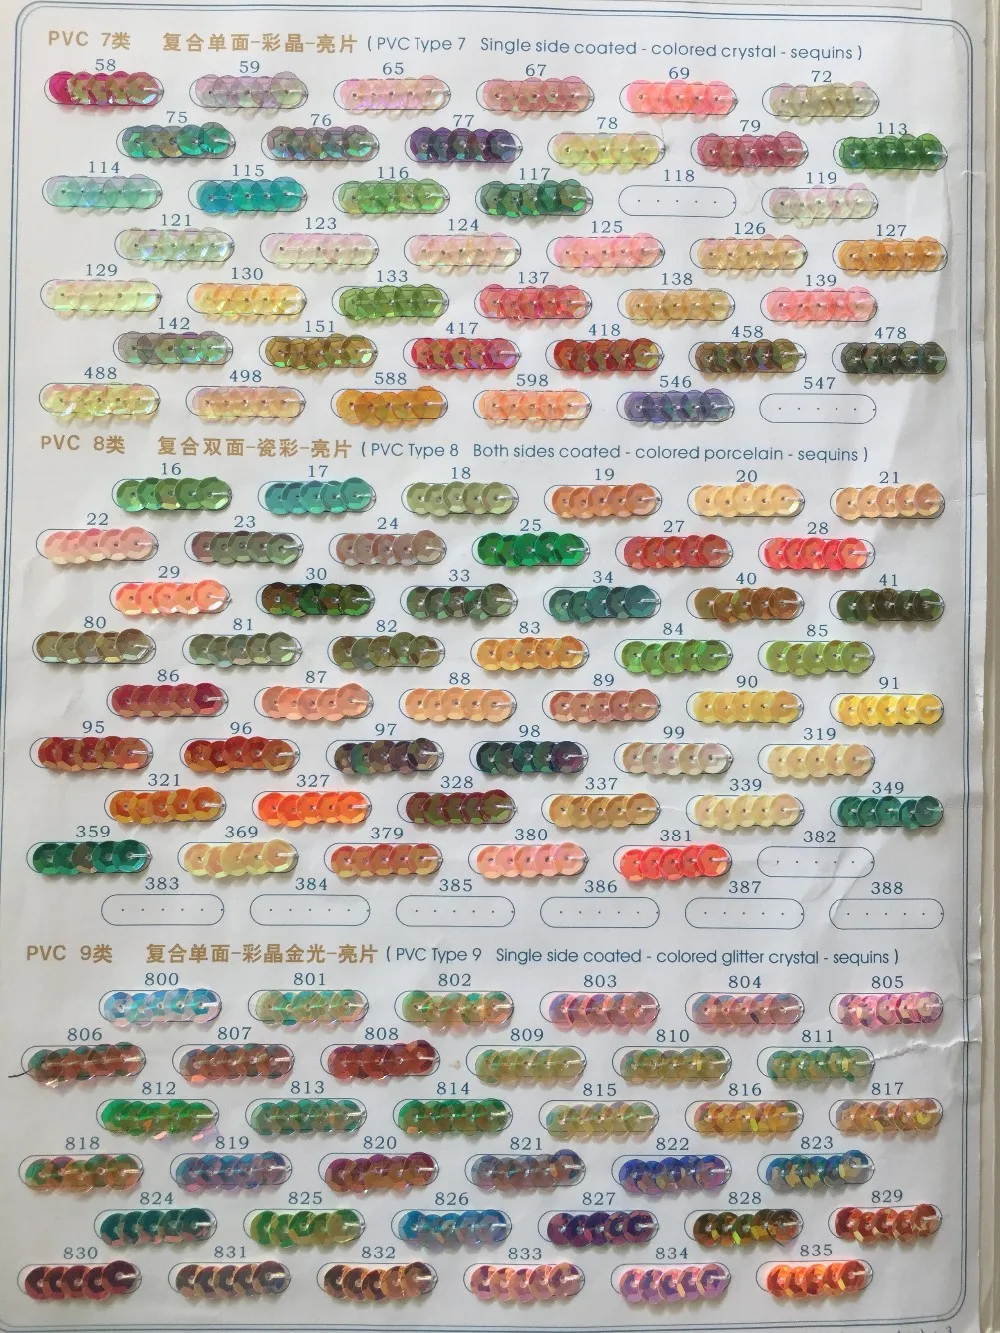 PVC 7类 复合单面-彩晶-亮片 ( PVC Type 7 Single side coated - colored crystal - sequins )
58 59 65 67 69 72
75 76 77 78 79 113
114 115 116 117 118 119
121 123 124 125 126 127
129 130 133 137 138 139
142 151 417 418 458 478
488 498 588 598 546 547
PVC 8类 复合双面-瓷彩-亮片 ( PVC Type 8 Both sides coated - colored porcelain - sequins )
16 17 18 19 20 21
22 23 24 25 27 28
29 30 33 34 40 41
80 81 82 83 84 85
86 87 88 89 90 91
95 96 97 98 99 319
321 327 328 337 339 349
359 369 379 380 381 382
383 384 385 386 387 388
PVC 9类 复合单面-彩晶金光-亮片 ( PVC Type 9 Single side coated - colored glitter crystal - sequins )
800 801 802 803 804 805
806 807 808 809 810 811
812 813 814 815 816 817
818 819 820 821 822 823
824 825 826 827 828 829
830 831 832 833 834 835